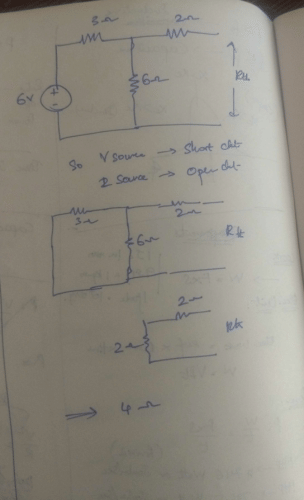 3Ω 2Ω
6Ω Rth
6V + -
So V source → Short ckt
I Source → Open ckt
3Ω 2Ω
6Ω Rth
2Ω
2Ω Rth
⇒ 4Ω